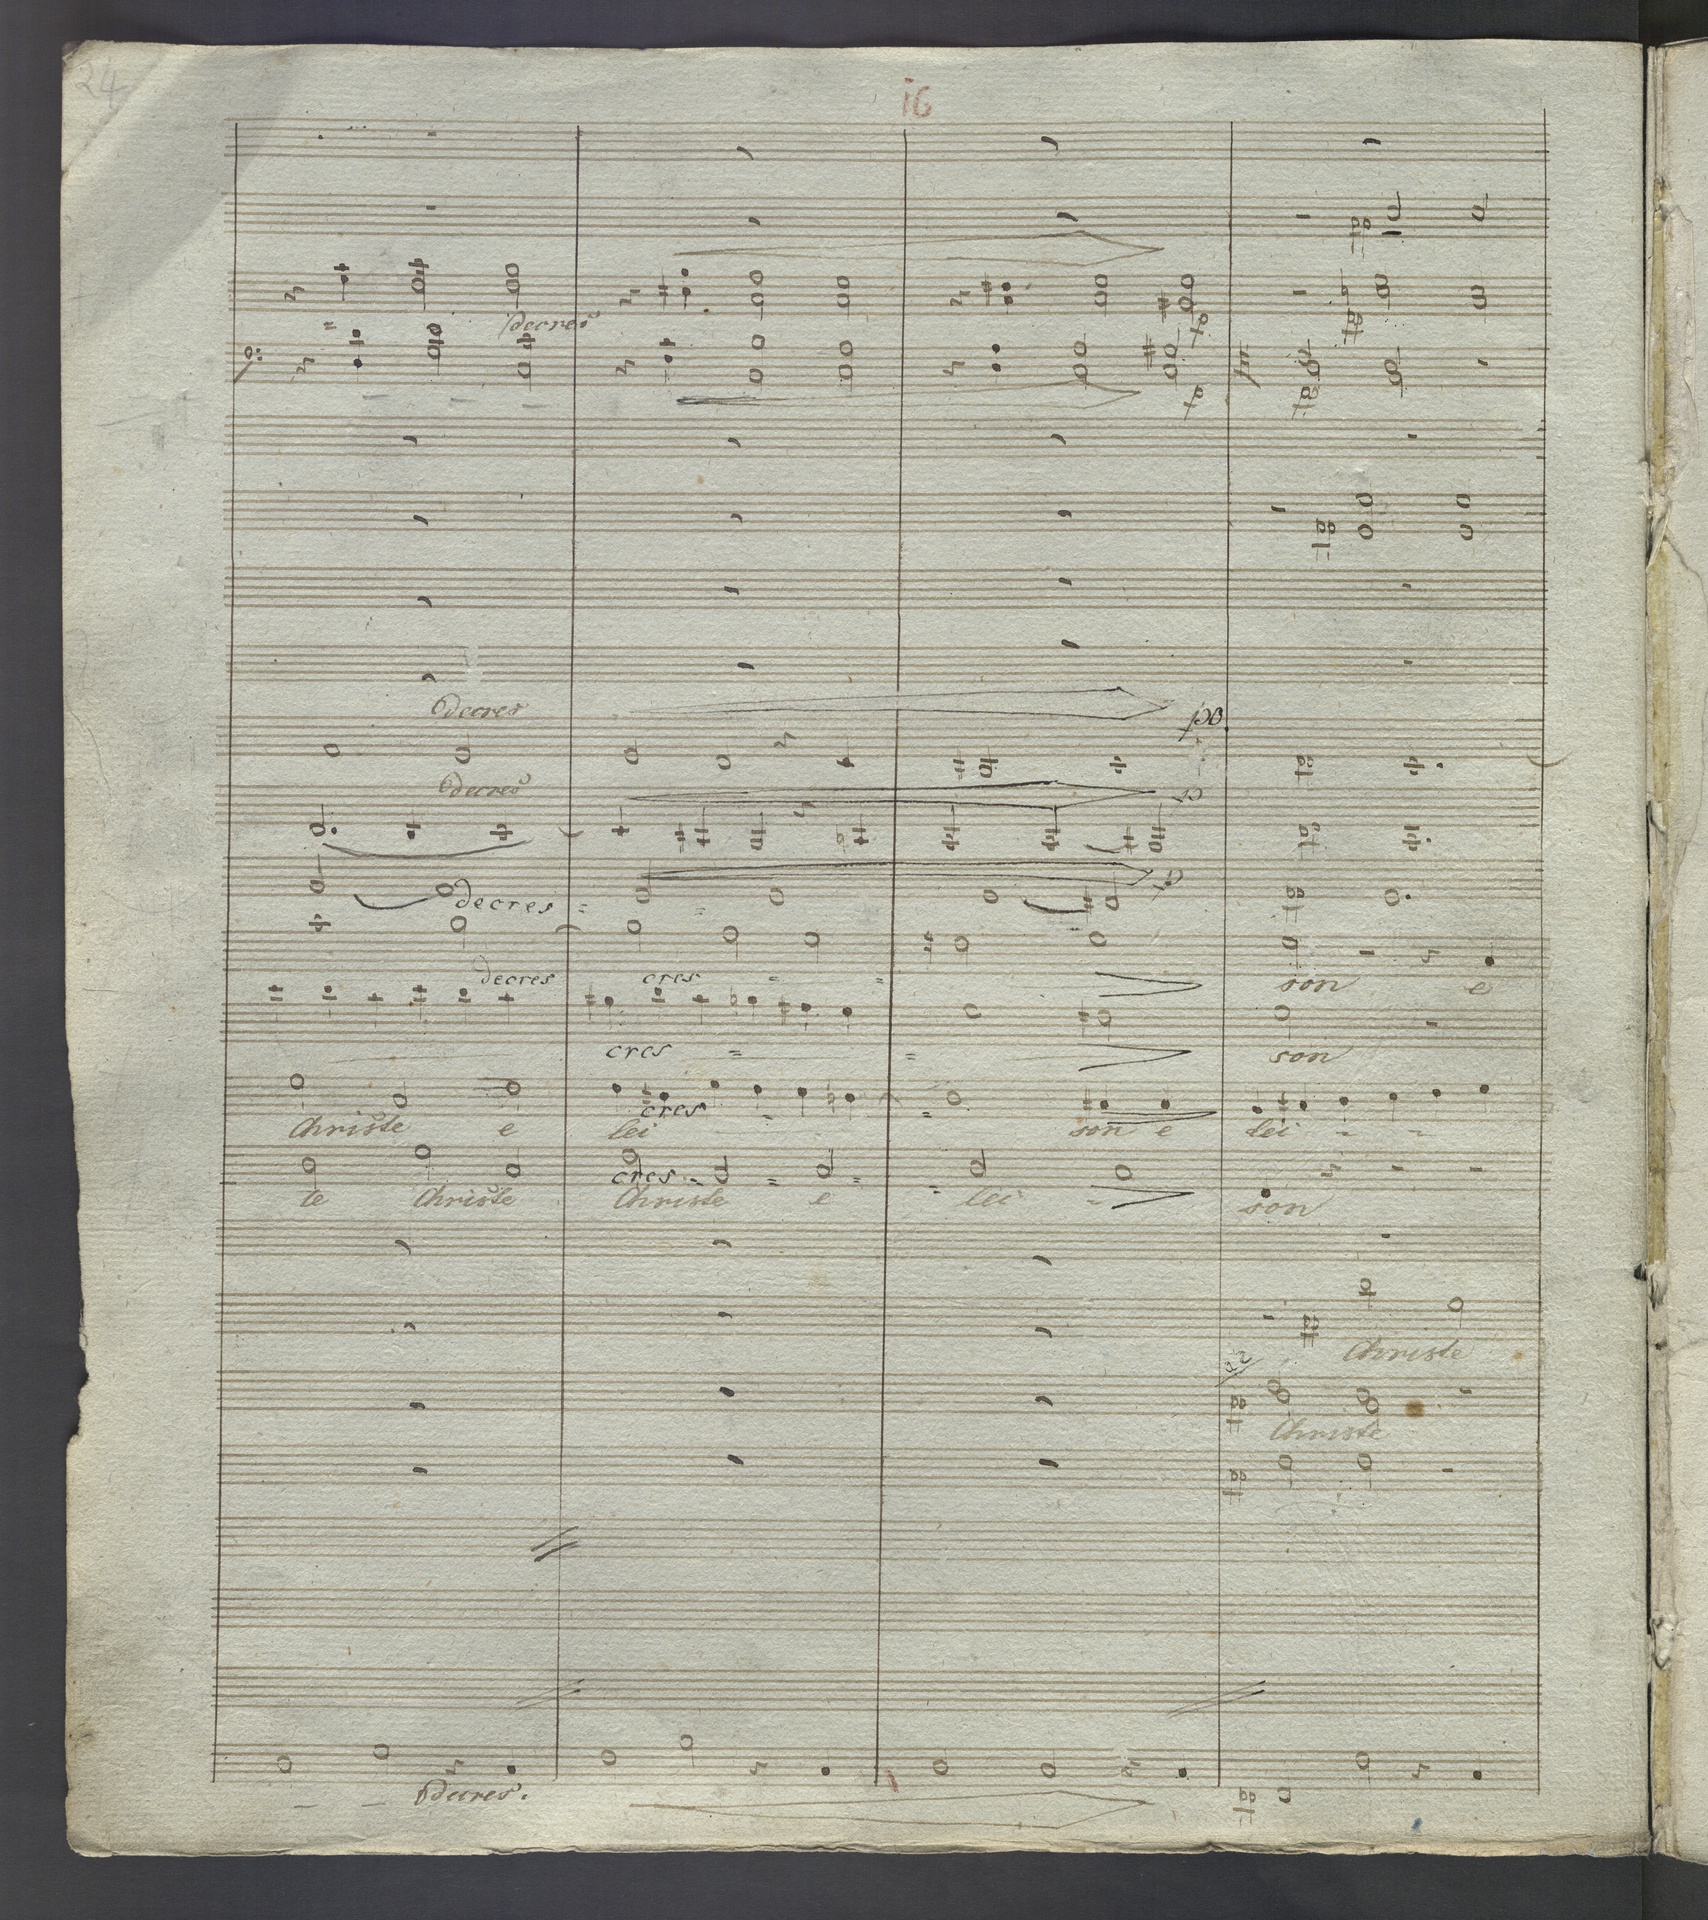 24
16
decres
decres
decres
decres
decres cres son e
cres son
cres
Christe e lei son e lei - -
cres
te Christe Christe e lei - son
Christe
a2
Christe
Decres.